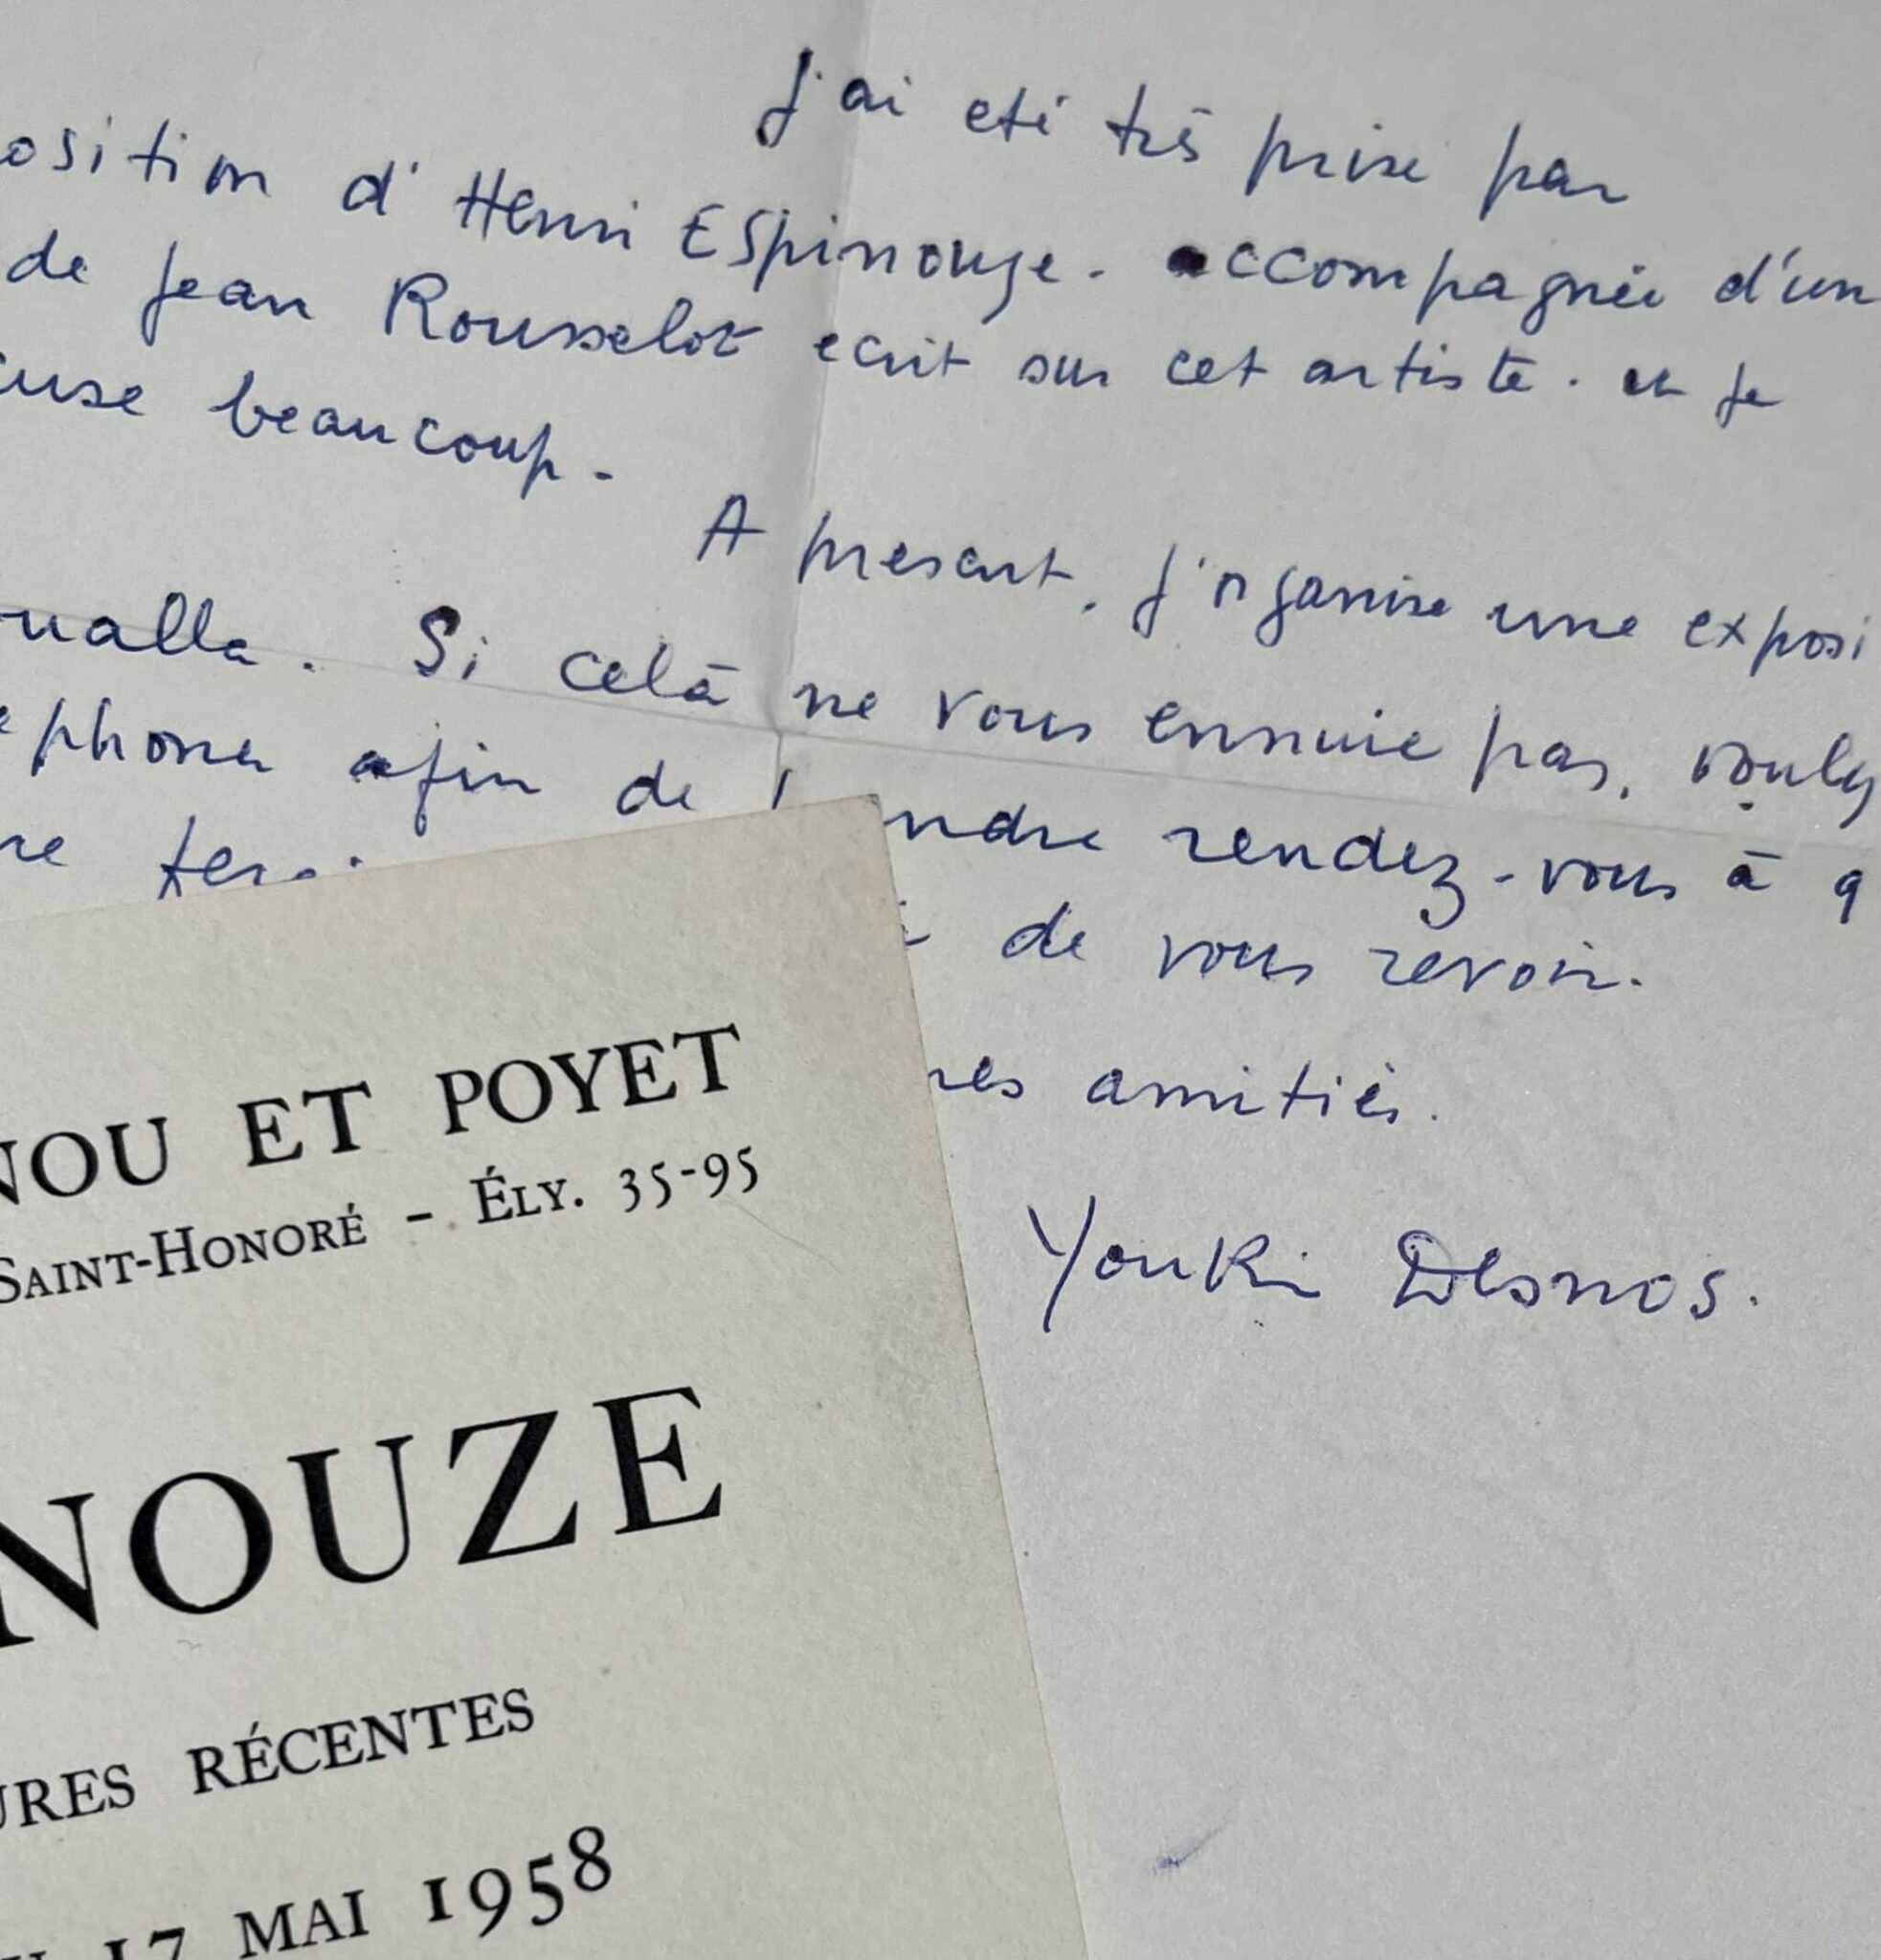 J'ai eté très prise par
osition d'Henri Espinouze. accompagnée d'un
de Jean Rousselot ecrit sur cet artiste. et je
cuse beaucoup.
A present, j'organise une exposi
ualla. Si celà ne vous ennuie pas, voulez
ephoner afin de ndre rendez-vous à q
re
de vous revoir.
res amitiés.
Youki Desnos.
NOU ET POYET
SAINT-HONORÉ – ÉLY. 35-95
NOUZE
URES RÉCENTES
17 MAI 1958